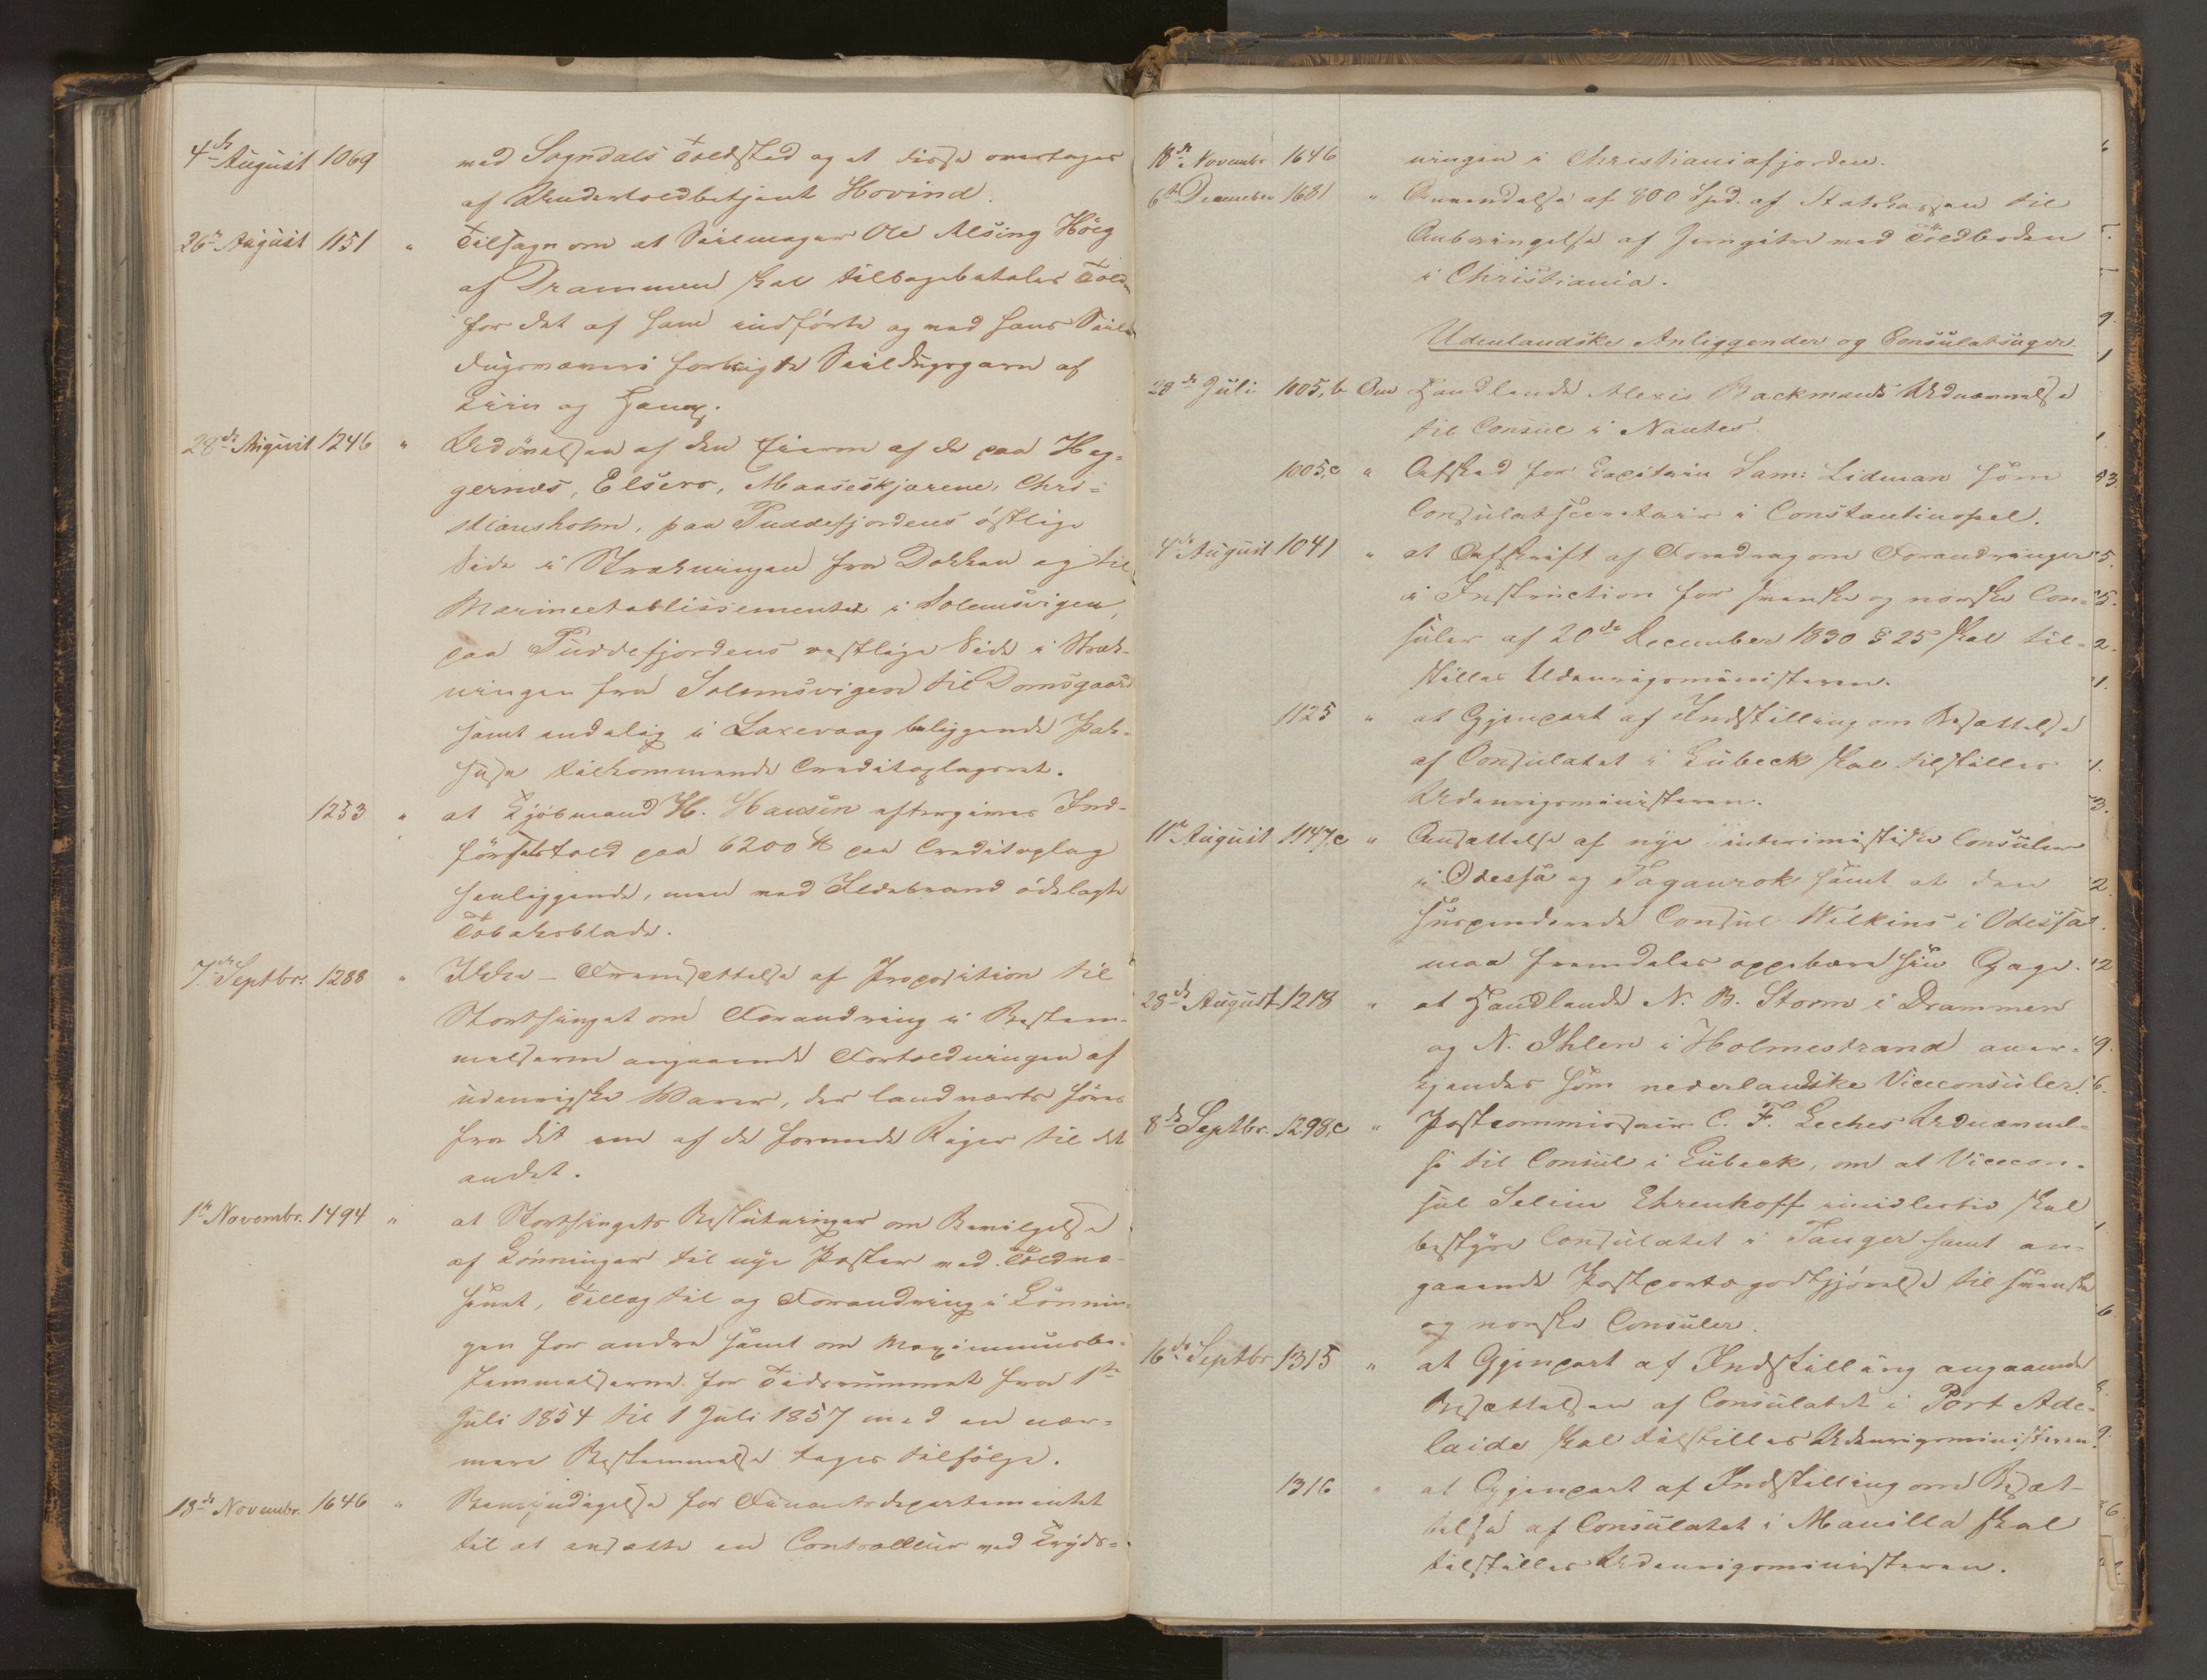 4de August 1069 med Sogndals Toldsted og at disse overtages
af Undertoldbetjent Hovind.
26de August 1151 " Tilsagn om at Seilmager Ole Alsing Höeg
af Drammen skal tilbagebetales Told
for det af ham indförte og med hans Seil
dugsvæveri forbrugte Seildugsgarn af
Liin og Hamp.
28de August 1246 " Udövelsen af den Eierne af de paa Heg-
gernæs, Elsero, Maaseskjærene, Chri-
stiansholm, paa Puddefjordens östlige
Side i Strækningen fra Dokken og til
Marineetablissementet i Solemsvigen,
paa Puddefjordens vestlige Side i Stræk-
ningen fra Solemsvigen til Domsgaard
samt endelig i Laxevaag beliggende Pak-
huse tilkommende Creditoplagsret.
1253 " at Kjöbmand H. Hansen eftergives Ind-
förselstold paa 6200 ℔ paa Creditoplag
henliggende, men ved Ildebrand ödelagte
Tobaksblade.
7de Septbr. 1288 " Ikke-Fremsættelse af Proposition til
Storthinget om Forandring i Bestem-
melserne angaaende Fortoldningen af
udenrigske Varer, der landværts föres
fra det ene af de forenede Riger til det
andet.
1ste Novembr. 1494 " at Storthingets Beslutninger om Bevilgelse
af Lönninger til nye Poster ved Toldvæ-
senet, Tillæg til og Forandring i Lönnin-
gen for andre samt om Maximumsbe-
stemmelserne for Tidsrummet fra 1ste
Juli 1854 til 1 Juli 1857 med en nær-
mere Bestemmelse tages tilfölge.
18de Novembr. 1646 " Bemyndigelse for Finantsdepartementet
til at ansætte en Controlleur ved Kryds-
18de Novembr 1646 ningen i Christianiafjorden.
6te December 1681 " Anvendelse af 800 Spd. af Statskassen til
Anbringelse af Jerngitter ved Toldboden
i Christiania.
Udenlandske Anliggender og Consulatsager
28de Juli 1005,b Om Handlende Alexis Backmans Udnævnelse
til Consul i Nantes.
1005,c " Afsked for Capitain Sam: Lidman som
Consulatsecretair i Constantinopel.
4de August 1041 " at Afskrift af Foredrag om Forandringer
i Instruction for svenske og norske Con-
suler af 20de December 1830 § 25 skal til-
stilles Udenrigsministeren.
1125 " at Gjenpart af Indstilling om Besættelse
af Consulatet i Lübeck skal tilstilles
Udenrigsministeren.
11te August 1147,c " Ansættelse af nye interimistiske Consuler
i Odessa og Taganrok samt at den
suspenderede Consul Wilkins i Odessa
maa fremdeles oppebære sin Gage.
25de August 1218 " at Handlende N. B. Storm i Drammen
og N. Ihlen i Holmestrand aner-
kjendes som nederlandske Viceconsuler.
8de Septbr. 1298,c " Postcommissair C. F. Leches Udnævnel-
se til Consul i Lübeck, om at Vicecon-
sul Selim Ehrenhoff imidlertid skal
bestyre Consulatet i Tanger samt an-
gaaende Postportogodtgjörelse til svenske
og norske Consuler.
16de Septbr 1315 " at Gjenpart af Indstilling angaaende
Besættelsen af Consulatet i Port Ade-
laide skal tilstilles Udenrigsministeren.
1316 " at Gjenpart af Indstilling om Besæt-
telse af Consulatet i Manilla skal
tilstilles Udenrigsministeren.